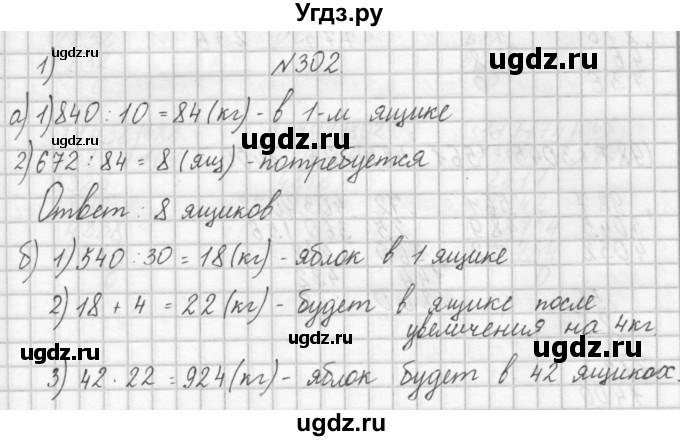 Угдз.ру
1) №302.
а) 1) 840 : 10 = 84 (кг) - в 1-м ящике
2) 672 : 84 = 8 (ящ) - потребуется
Ответ: 8 ящиков
б) 1) 540 : 30 = 18 (кг) - яблок в 1 ящике
2) 18 + 4 = 22 (кг) - будет в ящике после
увеличения на 4кг
3) 42 · 22 = 924 (кг) - яблок будет в 42 ящиках.
ugdz.ru
ugdz.ru
ugdz.ru
ugdz.ru
ugdz.ru
ugdz.ru
ugdz.ru
ugdz.ru
ugdz.ru
ugdz.ru
ugdz.ru
ugdz.ru
ugdz.ru